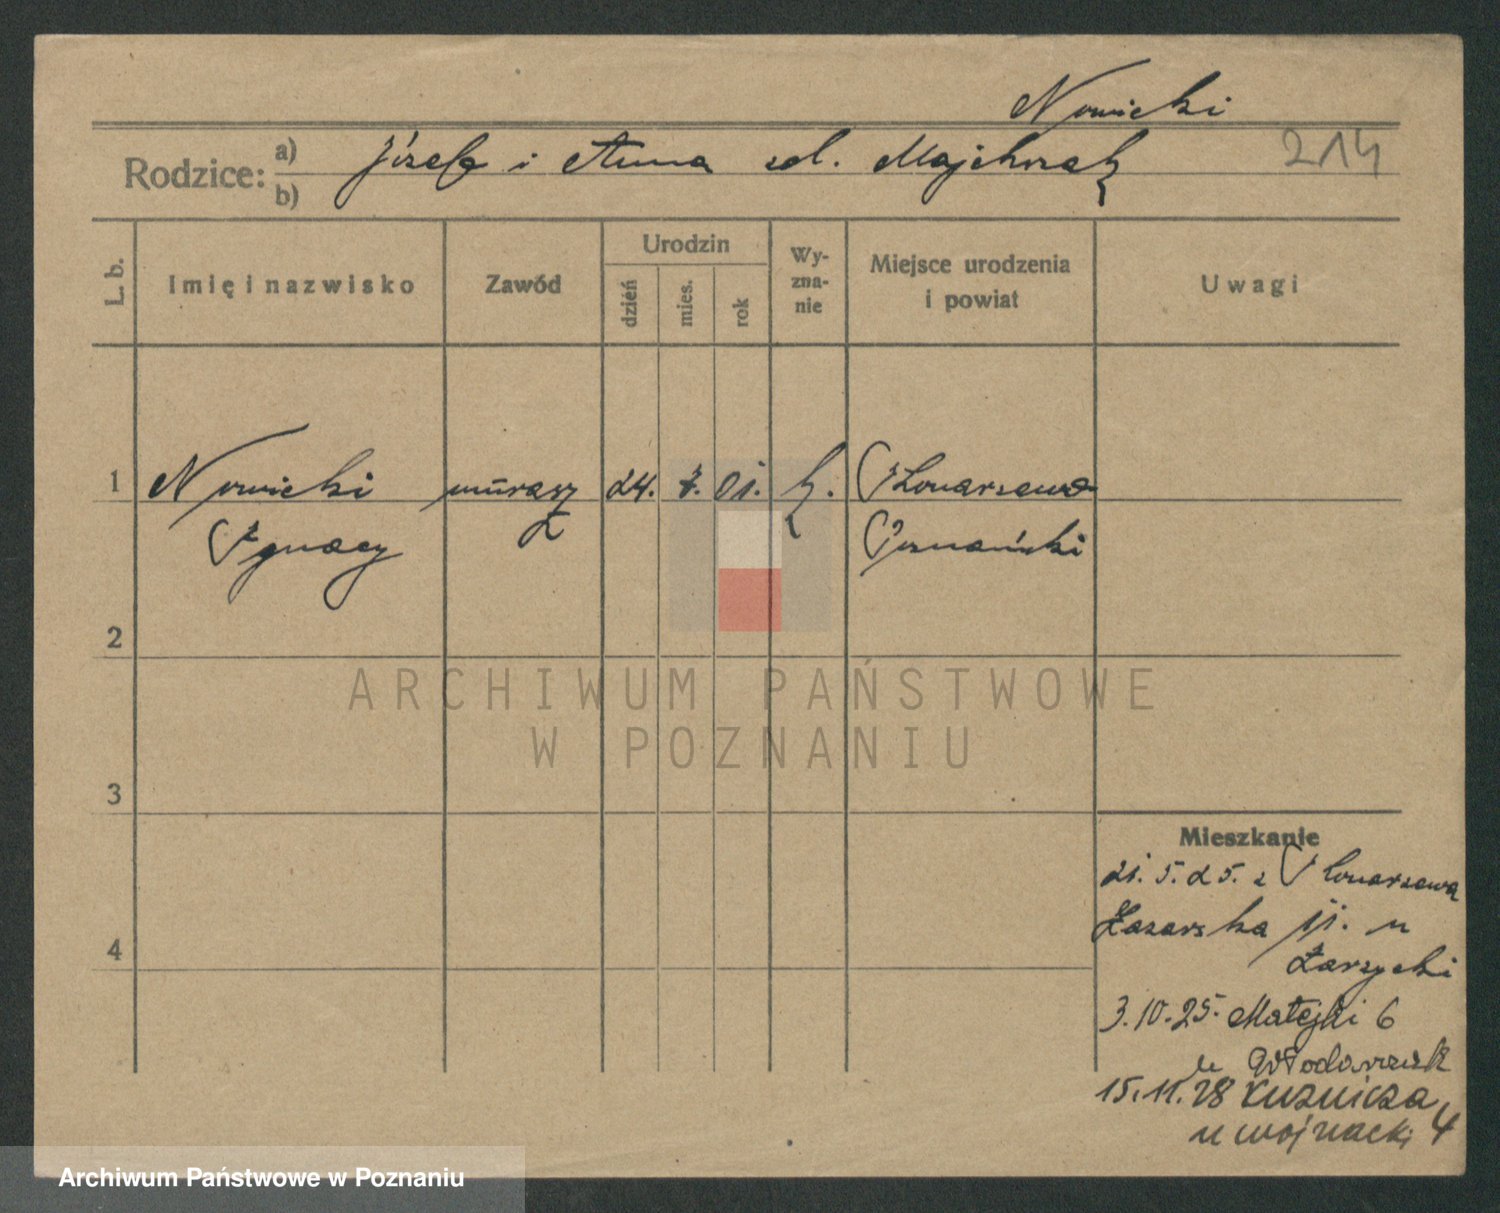 Nowicki
Rodzice: a) Józef i Anna zd. Majchrzak 214
b)
L. b. Imię i nazwisko Zawód Urodzin dzień mies. rok Wy-zna-nie Miejsce urodzenia i powiat Uwagi
1 Nowicki murarz 24. 7. 01. k.
Ignacy Poznański
2
ARCHIWUM PAŃSTWOWE
W POZNANIU
3
Mieszkanie
21.5.25. z
4
3.10.25. Matejki 6
u Włodarczak
15.11.28 Kuźnicza 4
u Wojnacki
Archiwum Państwowe w Poznaniu